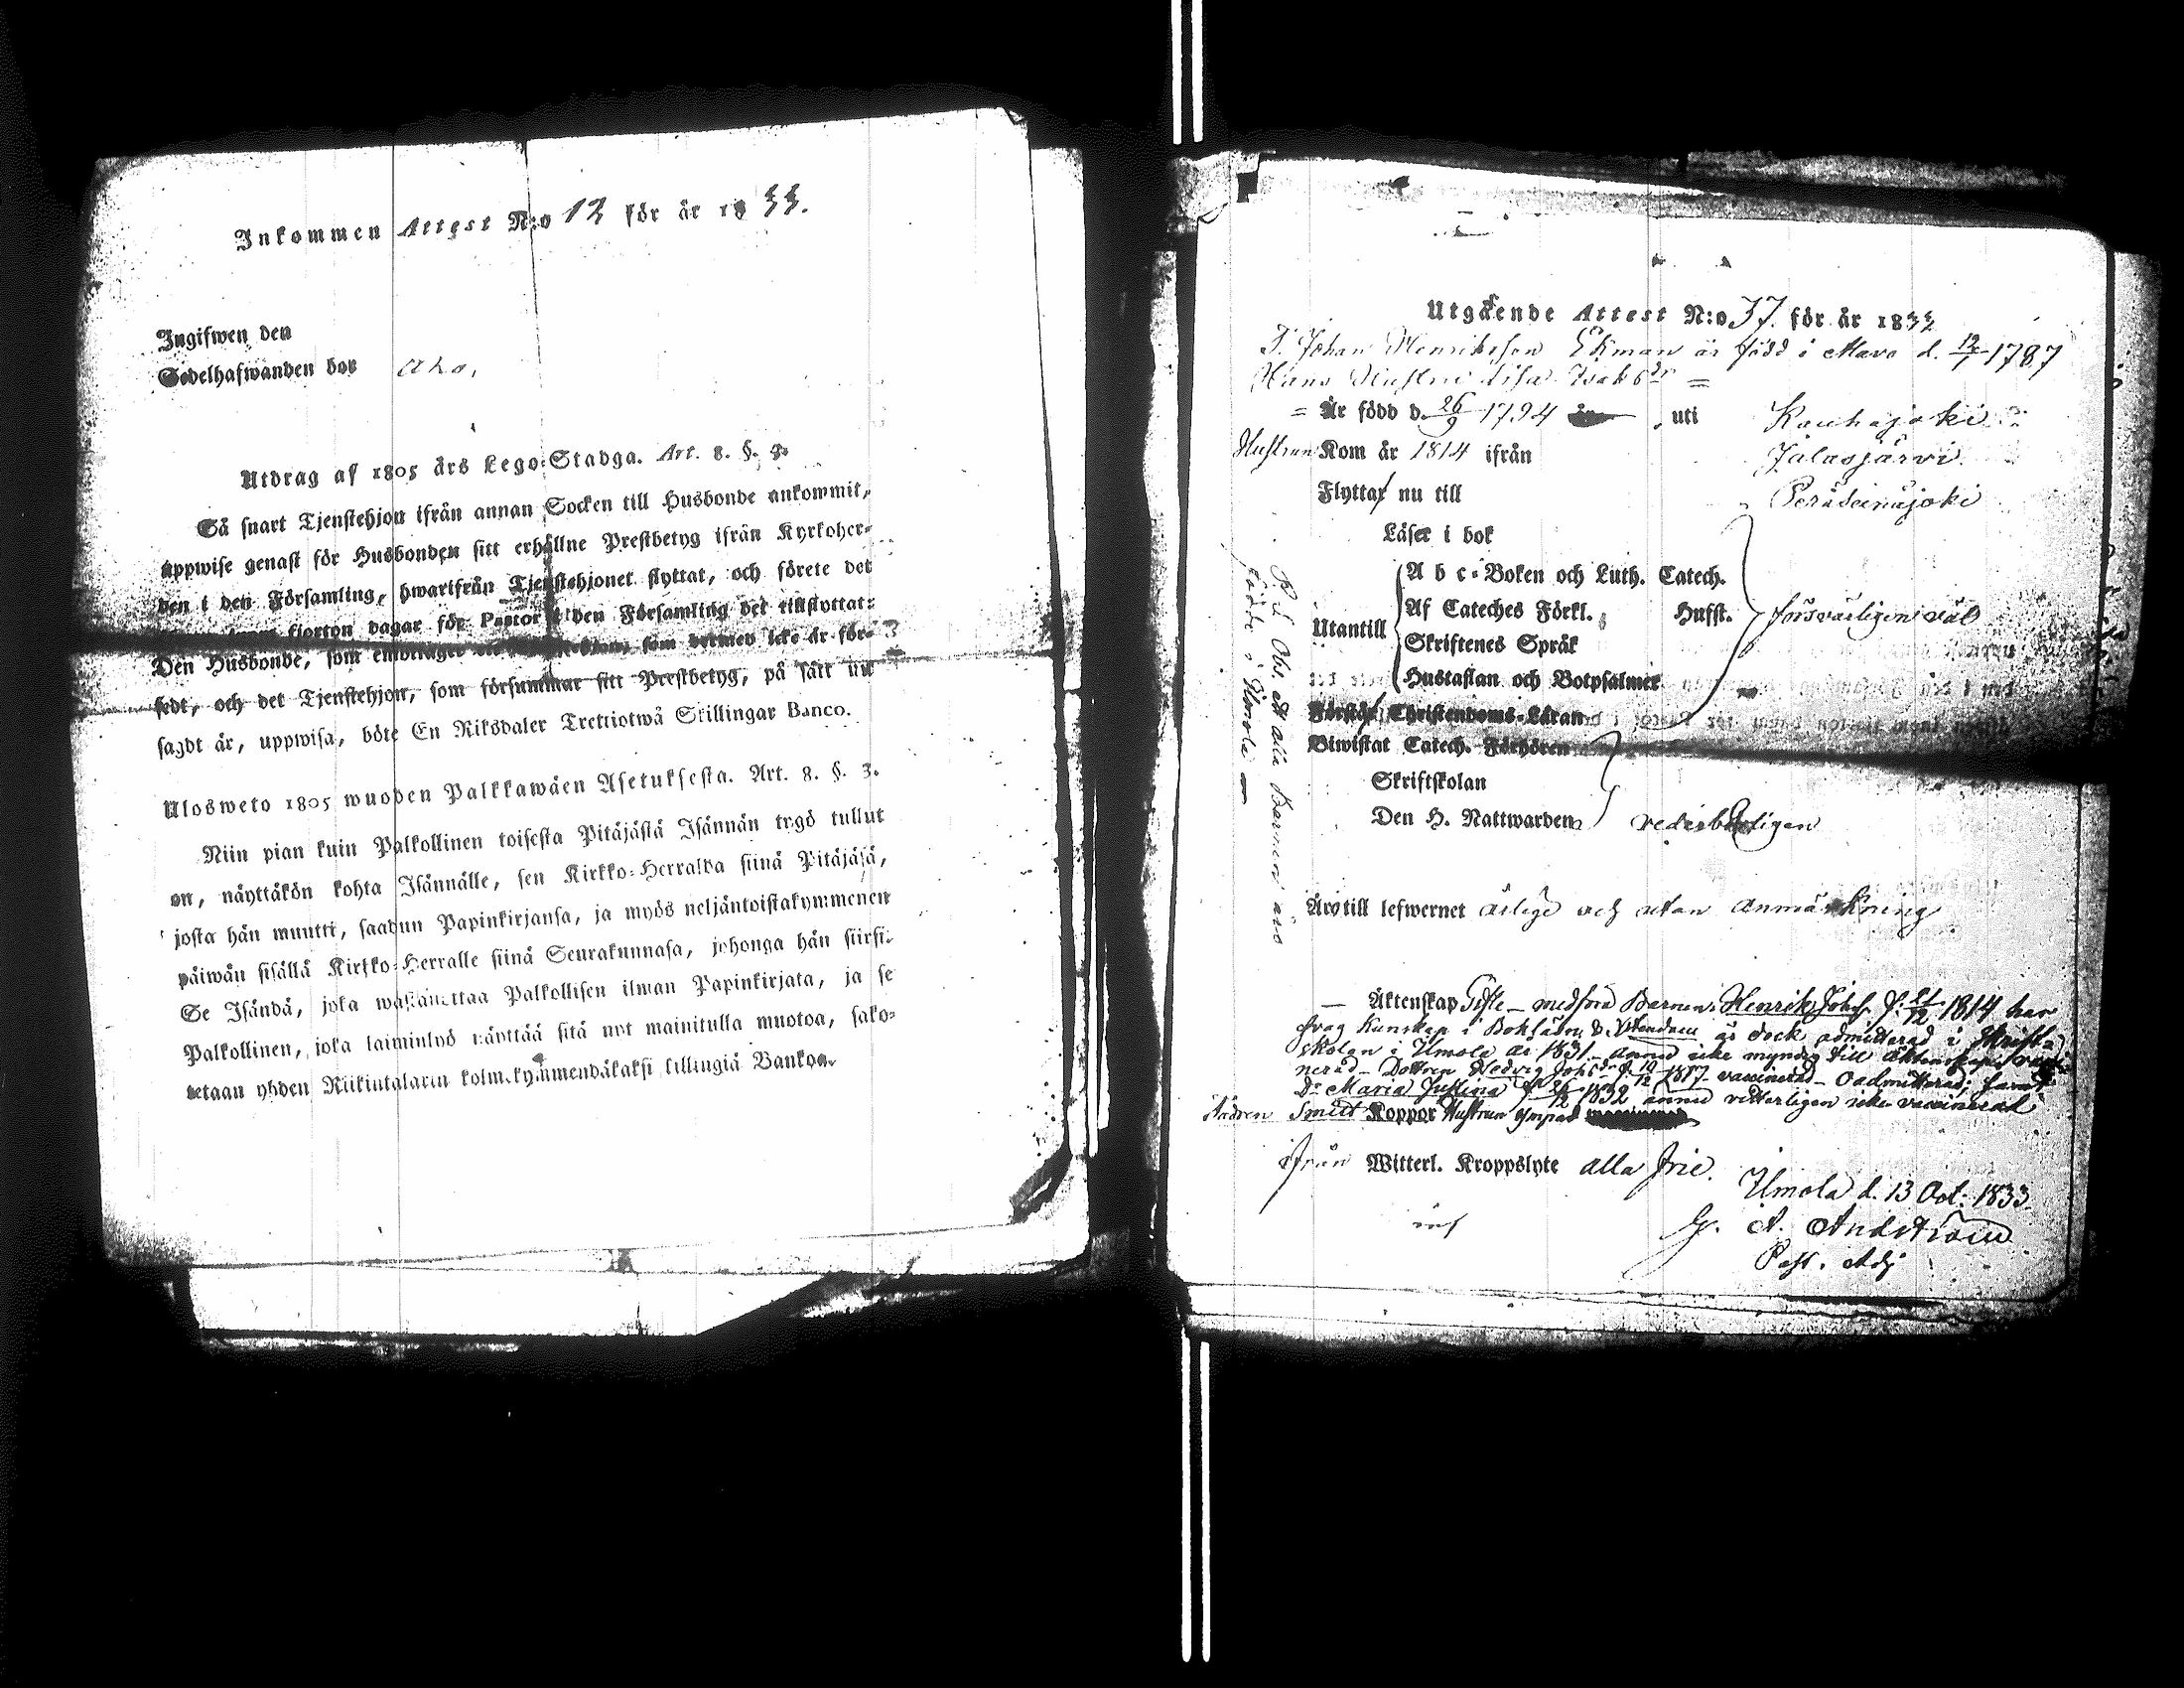 Inkommen Attest N:o 12 för år 1833.
Ingifwen den
Sedelhafwanden bor Aho,
Utdrag af 1805 års Lego-Stadga. Art. 8. §. 3.
Så snart Tjenstehjon ifrån annan Socken till Husbonde ankommit,
uppwise genast för Husbonden sitt erhållne Prestbetyg ifrån Kyrkoher-
den i den Församling, hwarifrån Tjenstehjonet flyttat, och förete det
fjorton dagar för Pastor i den Församling det tillflyttat:
Den Husbonde, som som dermed icke är för-
sedt, och det Tjenstehjon, som försummar sitt Prestbetyg, på sätt nu
sagdt är, uppwisa, böte En Riksdaler Trettiotwå Skillingar Banco.
Ulosweto 1805 wuoden Palkkawäen Asetuksesta. Art. 8. §. 3.
Niin pian kuin Palkollinen toisesta Pitäjästä Isännän tygö tullut
on, näyttäkön kohta Isännälle, sen Kirkko-Herralda siinä Pitäjäsä,
josta hän muutti, saadun Papinkirjansa, ja myös neljäntoistakymmenen
päiwän sisällä Kirkko-Herralle siinä Seurakunnasa, johonga hän siirsi.
Se Isändä, joka wastanottaa Palkollisen ilman Papinkirjata, ja se
Palkollinen, joka laiminlyö näyttää sitä nyt mainitulla muotoa, sako-
tetaan yhden Riikintalarin kolmekymmendäkaksi killingiä Bankoa.
Utgående Attest N:o 37. för år 1833
T. Johan Henriksson Ekman är född i Mavo d. 12/1 1787
Hans Hustru Lisa Isaksdr =
= Är född d. 26/9 1794 , uti Kauhajoki
Hustrun Kom år 1814 ifrån Jalasjärvi
Flyttar nu till Peräseinäjoki
Läser i bok
A b c-Boken och Luth. Catech.
Utantill Af Cateches Förkl. Husfl. försvarligen väl
Skriftenes Språk
Hustaflan och Botpsalmer
Förstår Christendoms-Läran
Biwistat Catech. Förhören
Skriftskolan
Den H. Nattwarden vederbörligen
Äro till lefwernet ärlige och utan anmärkning
— Äktenskap Gifte – medföra Barnen: Henrik Johs f. 21/12 1814 har
svag Kunskap i Bokläsn. & Utandläsn är dock admitterad i Skrift-
skolan i Ilmola år 1831 – ännu icke myndig till äktenskap, vacci-
nerad – Dottren Hedvig Johsdr f. 10/12 1817 – vaccinerad – Oadmitterad; samt
Dr Maria Justina f. 26/12 1832 ännu vetterligen icke vaccinerad
Fadren Smitt Koppor Hustrun ympad
ifrån Witterl. Kroppslyte alla frie.
Ilmola d. 13 Oct. 1833
G. A. Andström
Past. Adj
P. S. Obs. att alla Barnen äro
födde i Ilmola —